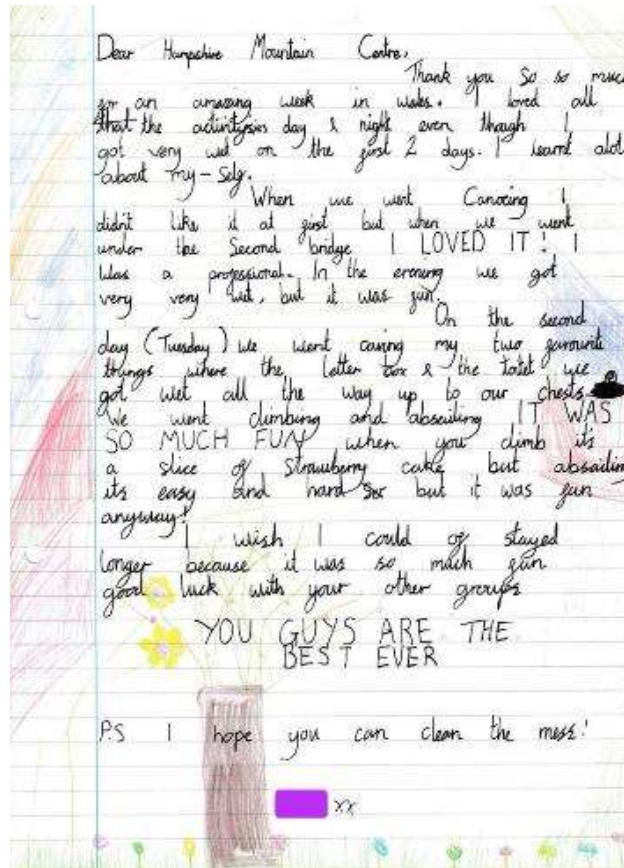 Dear Hampshire Mountain Centre,
Thank you so so much
for an amazing week in wales. I loved all
that the activitysies day & night even though I
got very wet on the first 2 days. I learnt alot
about my-self.
When we went Canoeing I
didn't like it at first but when we went
under the Second bridge I LOVED IT! I
was a professional. In the evening we got
very very wet, but it was fun.
On the second
day (Tuesday) we went caving my two favourite
things where the letter box & the toilet we
got wet all the way up to our chests
We went climbing and abseiling IT WAS
SO MUCH FUN when you climb its
a slice of Strawberry cake but absailing
its easy and hard but it was fun
anyway!
I wish I could of stayed
longer because it was so much fun
good luck with your other groups
YOU GUYS ARE THE
BEST EVER
P.S I hope you can clean the mess!
xx